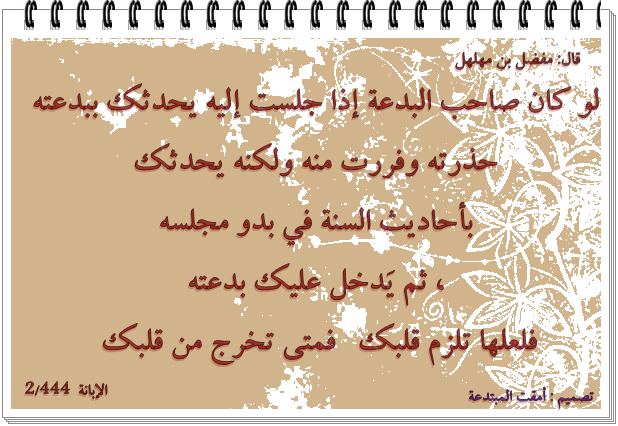 قال: مفضل بن مهلهل
لو كان صاحب البدعة إذا جلست إليه يحدثك ببدعته
حذرته وفررت منه ولكنه يحدثك
بأحاديث السنة في بدو مجلسه
، ثم يَدخل عليك بدعته
فلعلها تلزم قلبك فمتى تخرج من قلبك
الإبانة 2/444
تصميم : أمقت المبتدعة